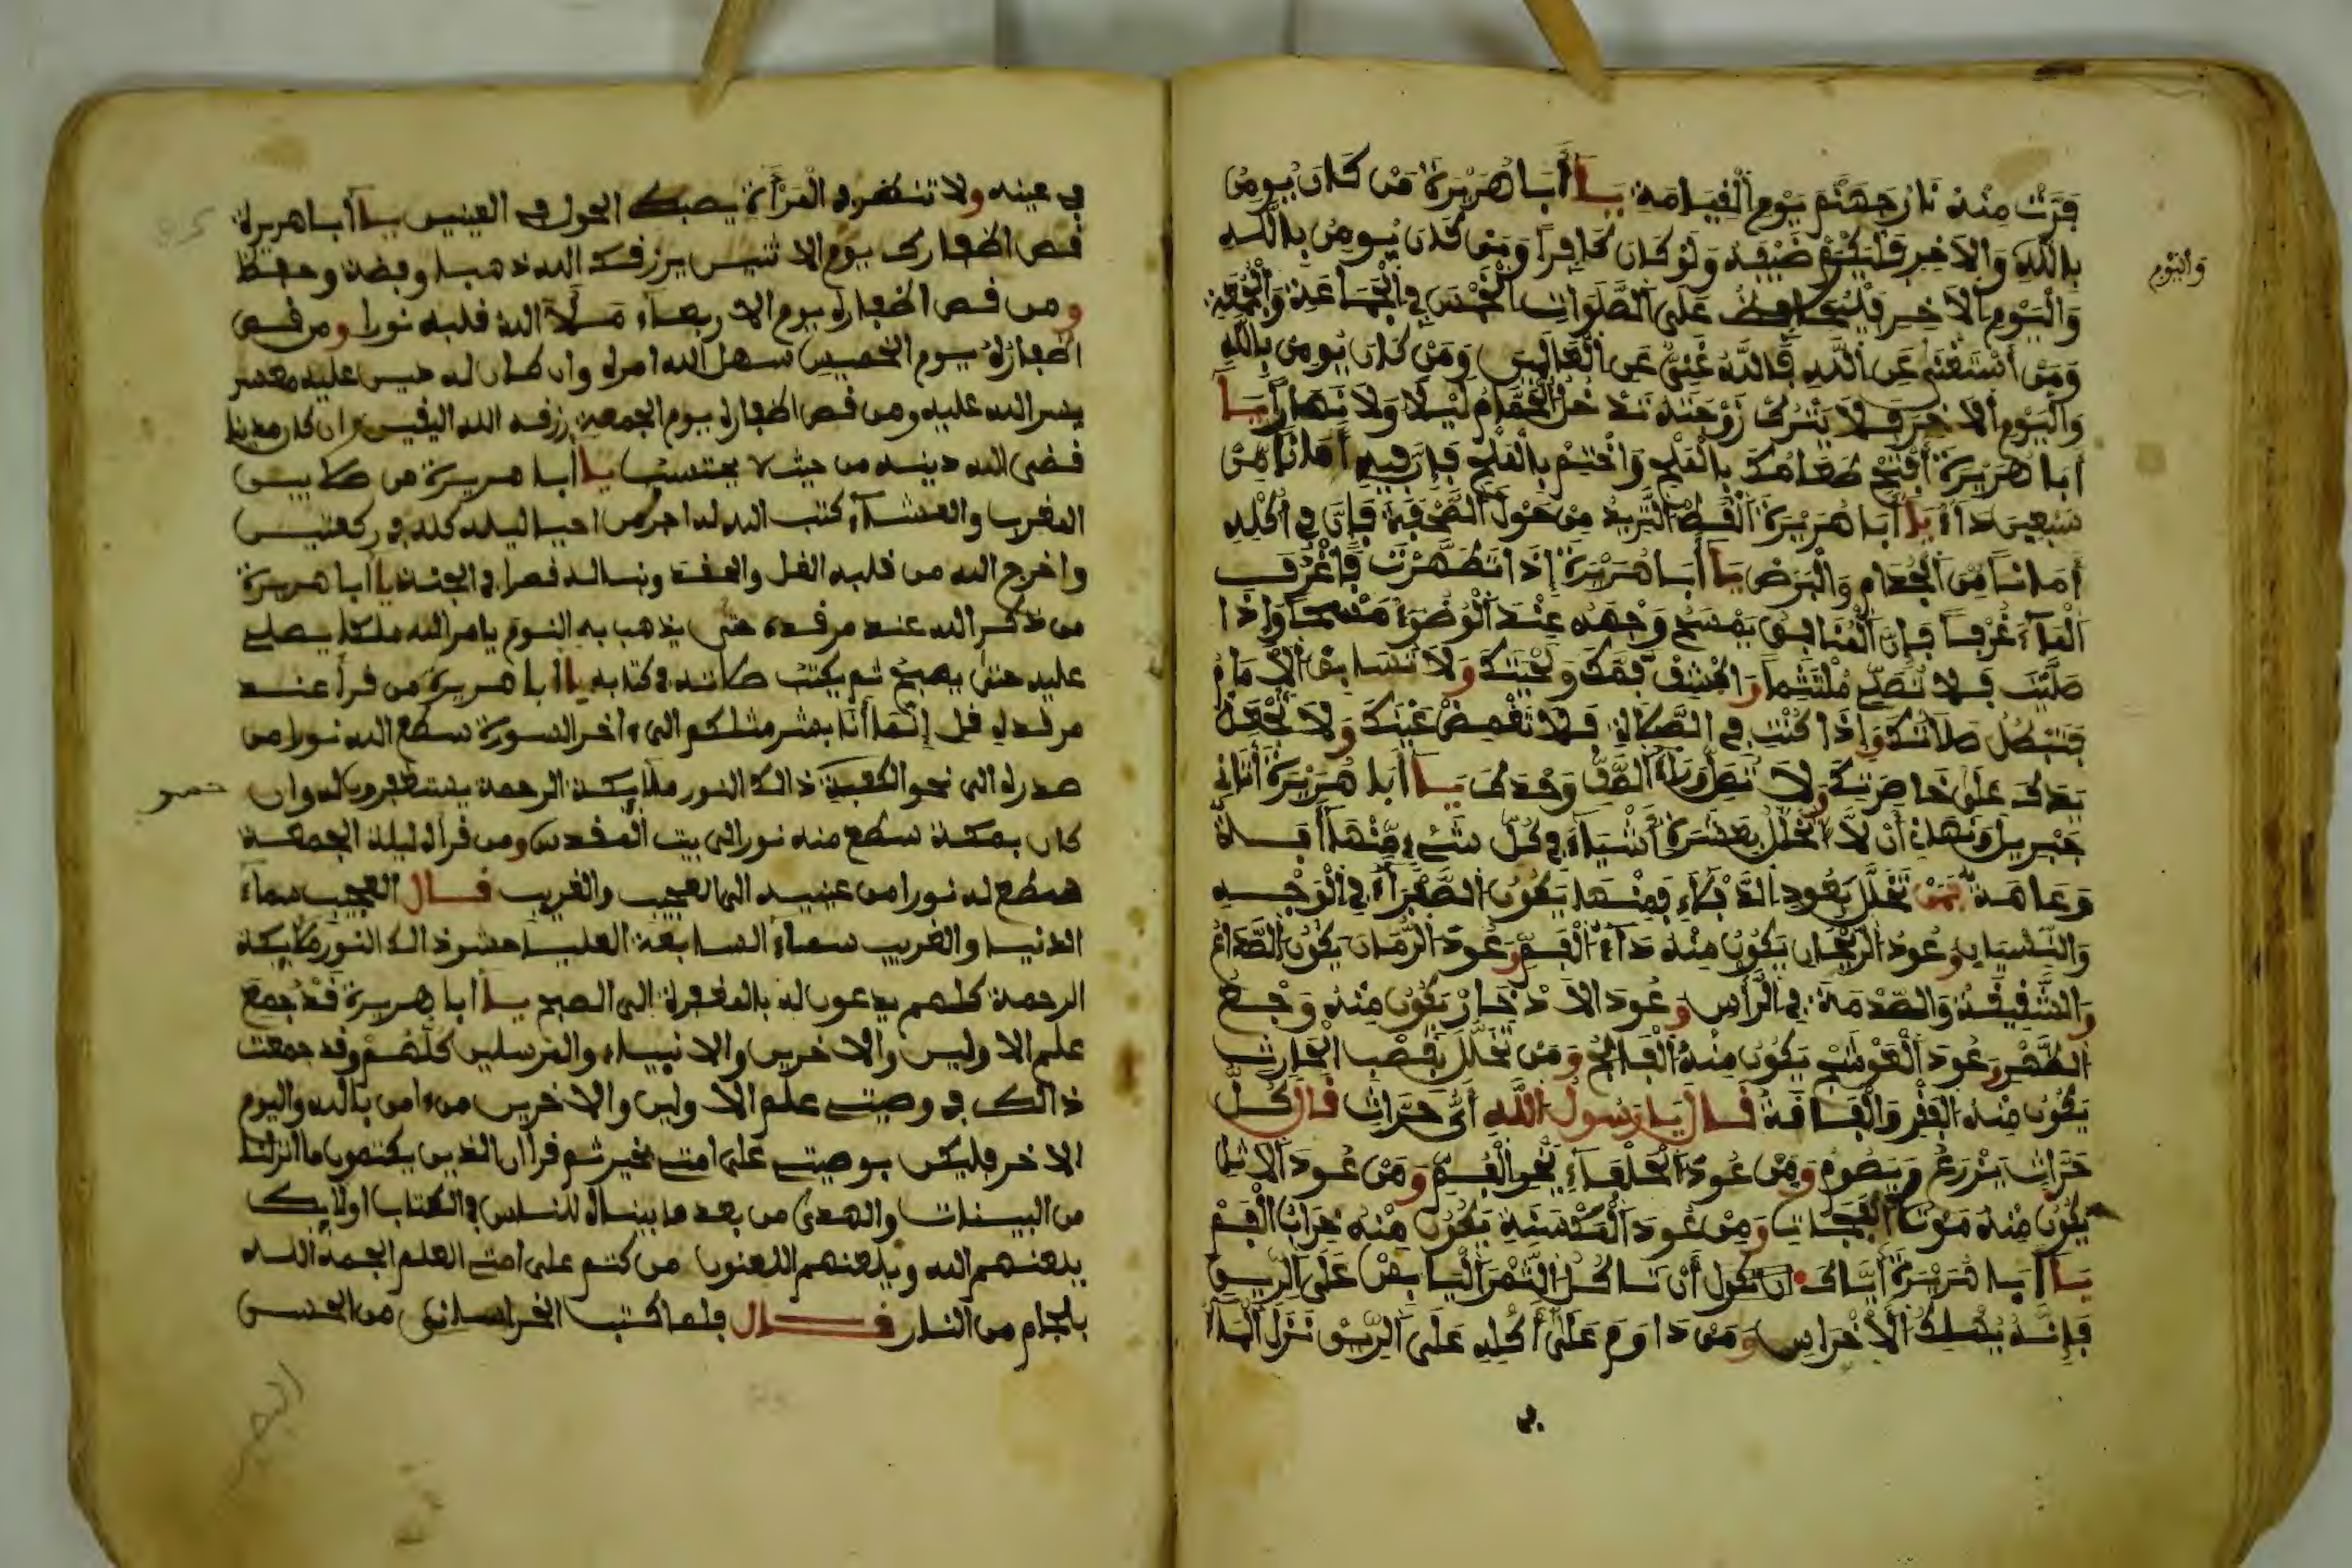 فرت منه نار جهنم يوم القيامة يا أبا هريرة من كان يومن
بالله والاخر فليكرم ضيفه ولو كان كافرا ومن كان يومن بالله
واليوم
واليوم الاخر فليحافظ على الصلوات الخمس في الجماعة والجمعة
ومن استغنى عن الله فالله غني عن العالمين ومن كان يومن بالله
واليوم الاخر فلا يترك زوجته تدخل الحمام ليلا ولا نهارا يا
أبا هريرة أفتح طعامك بالملح واختم بالملح فإن فيه أمانا من
سبعين داء يا أبا هريرة القط الثريد من حول الصحفة فإن في أكله
أمانا من الجذام والبرص يا أبا هريرة إذا تطهرت فاغرف
الماء غرفا فإن المنافق يمسح وجهه عند الوضوء مسحا وإذا
صليت فلا تصل ملتثما واكشف فمك ولحيتك ولا تسابق الامام
فتبطل صلاتك وإذا كنت في الصلاة فلا تغمض عينك ولا تجعل
يدك على خاصرتك ولا تصل وراء الصف وحدك يا أبا هريرة أتاني
جبريل ونهاني أن لا أتخلل بعشرة أشياء في كل شيء منها أفة
وعاهة فمن تخلل بعود الدفلاء فمنها يكون الصفراء في الوجه
والنسيان وعود الريحان يكون منه داء الفم وعود الرمان يكون الصداع
والشقيقة والصدمة في الرأس وعود الاذخار يكون منه وجع
الظهر وعود العوسج يكون منه الفالج ومن تخلل بقصب الحارث
يكون منه الفقر والفاقة قال يا رسول الله أي حراث قال كل
حراث يزرع ويصوم ومن عود الحلفاء يخر الفم ومن عود الاثل
يكون منه موت الفجات ومن عود المكنسة يكون منه خراب الفم
يا أبا هريرة إياك أن تاكل التمر اليابس على الريق
فإنه يهلك الأخراس ومن داوم على أكله على الريق نزل الماء
في
في عينه ولا تنظر في المرأة يصبك الحول في العينين يا أبا هريرة
قص اظفارك يوم الاثنين يرزقك الله ذهبا وفضة وحفظ
ومن قص اظفاره يوم الاربعاء ملأ الله قلبه نورا ومن قص
اظفاره يوم الخميس سهل الله امره وان كان له حبس عليه معسر
يسر الله عليه ومن قص اظفاره يوم الجمعة رزقه الله اليقين وان كان مدينا
قضى الله دينه من حيث لا يحتسب يا أبا هريرة من صلى بين
المغرب والعشاء كتب الله له اجر من احيا ليله كله في ركعتين
واخرج الله من قلبه الغل والحقد وبنا له قصرا في الجنة يا أبا هريرة
من ذكر الله عند مرقده حتى يذهب به النوم يامر الله ملكا يصلي
عليه حتى يصبح ثم يكتب صلاته في كتابه يا أبا هريرة من قرأ عند
مرقده قل إنما أنا بشر مثلكم الى ءاخر السورة سطع الله نورا من
صدره الى نحو الكعبة ذالك النور ملايكة الرحمة يستغفرون له وان
كان بمكة سطع منه نور الى بيت المقدس ومن قرأه ليلة الجمعة
سطع له نورا من عينيه الى العجيب والغريب قال العجيب سماء
الدنيا والغريب سماء السابعة العليا حشو ذالك النور ملايكة
الرحمة كلهم يدعون له بالمغفرة الى الصبح يا أبا هريرة قد جمع
علم الاولين والاخرين والانبياء والمرسلين كلهم وقد جمعت
ذالك في وصيتي علم الاولين والاخرين من ءامن بالله واليوم
الاخر فليكن بوصيتي على امتي بخير ثم قرأ ان الذين يكتمون ما انزلنا
من البينات والهدى من بعد ما بيناه للناس في الكتاب اولايك
يلعنهم الله ويلعنهم اللعنون من كتم علي امتي العلم الجمه الله
بلجام من النار قال فلما كتب الخراساني من الحسن
البصري